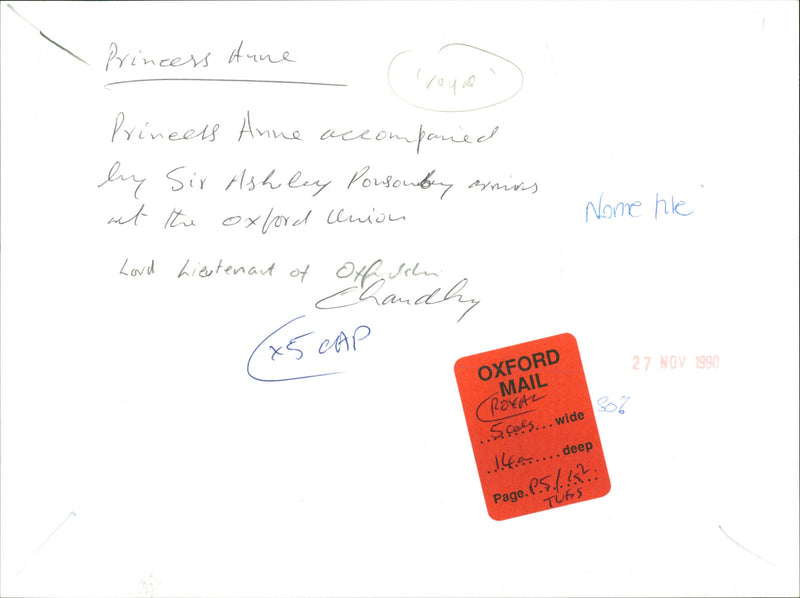 Princess Anne
'royal'
Princess Anne accompanied
by Sir Ashley Ponsonby arrives
at the Oxford Union
Name file
Lord Lieutenant of
Chandley
x5 CAP
27 NOV 1990
OXFORD
MAIL
ROYAL
5 cols wide
80%
14cm deep
Page P5/1st
TUES